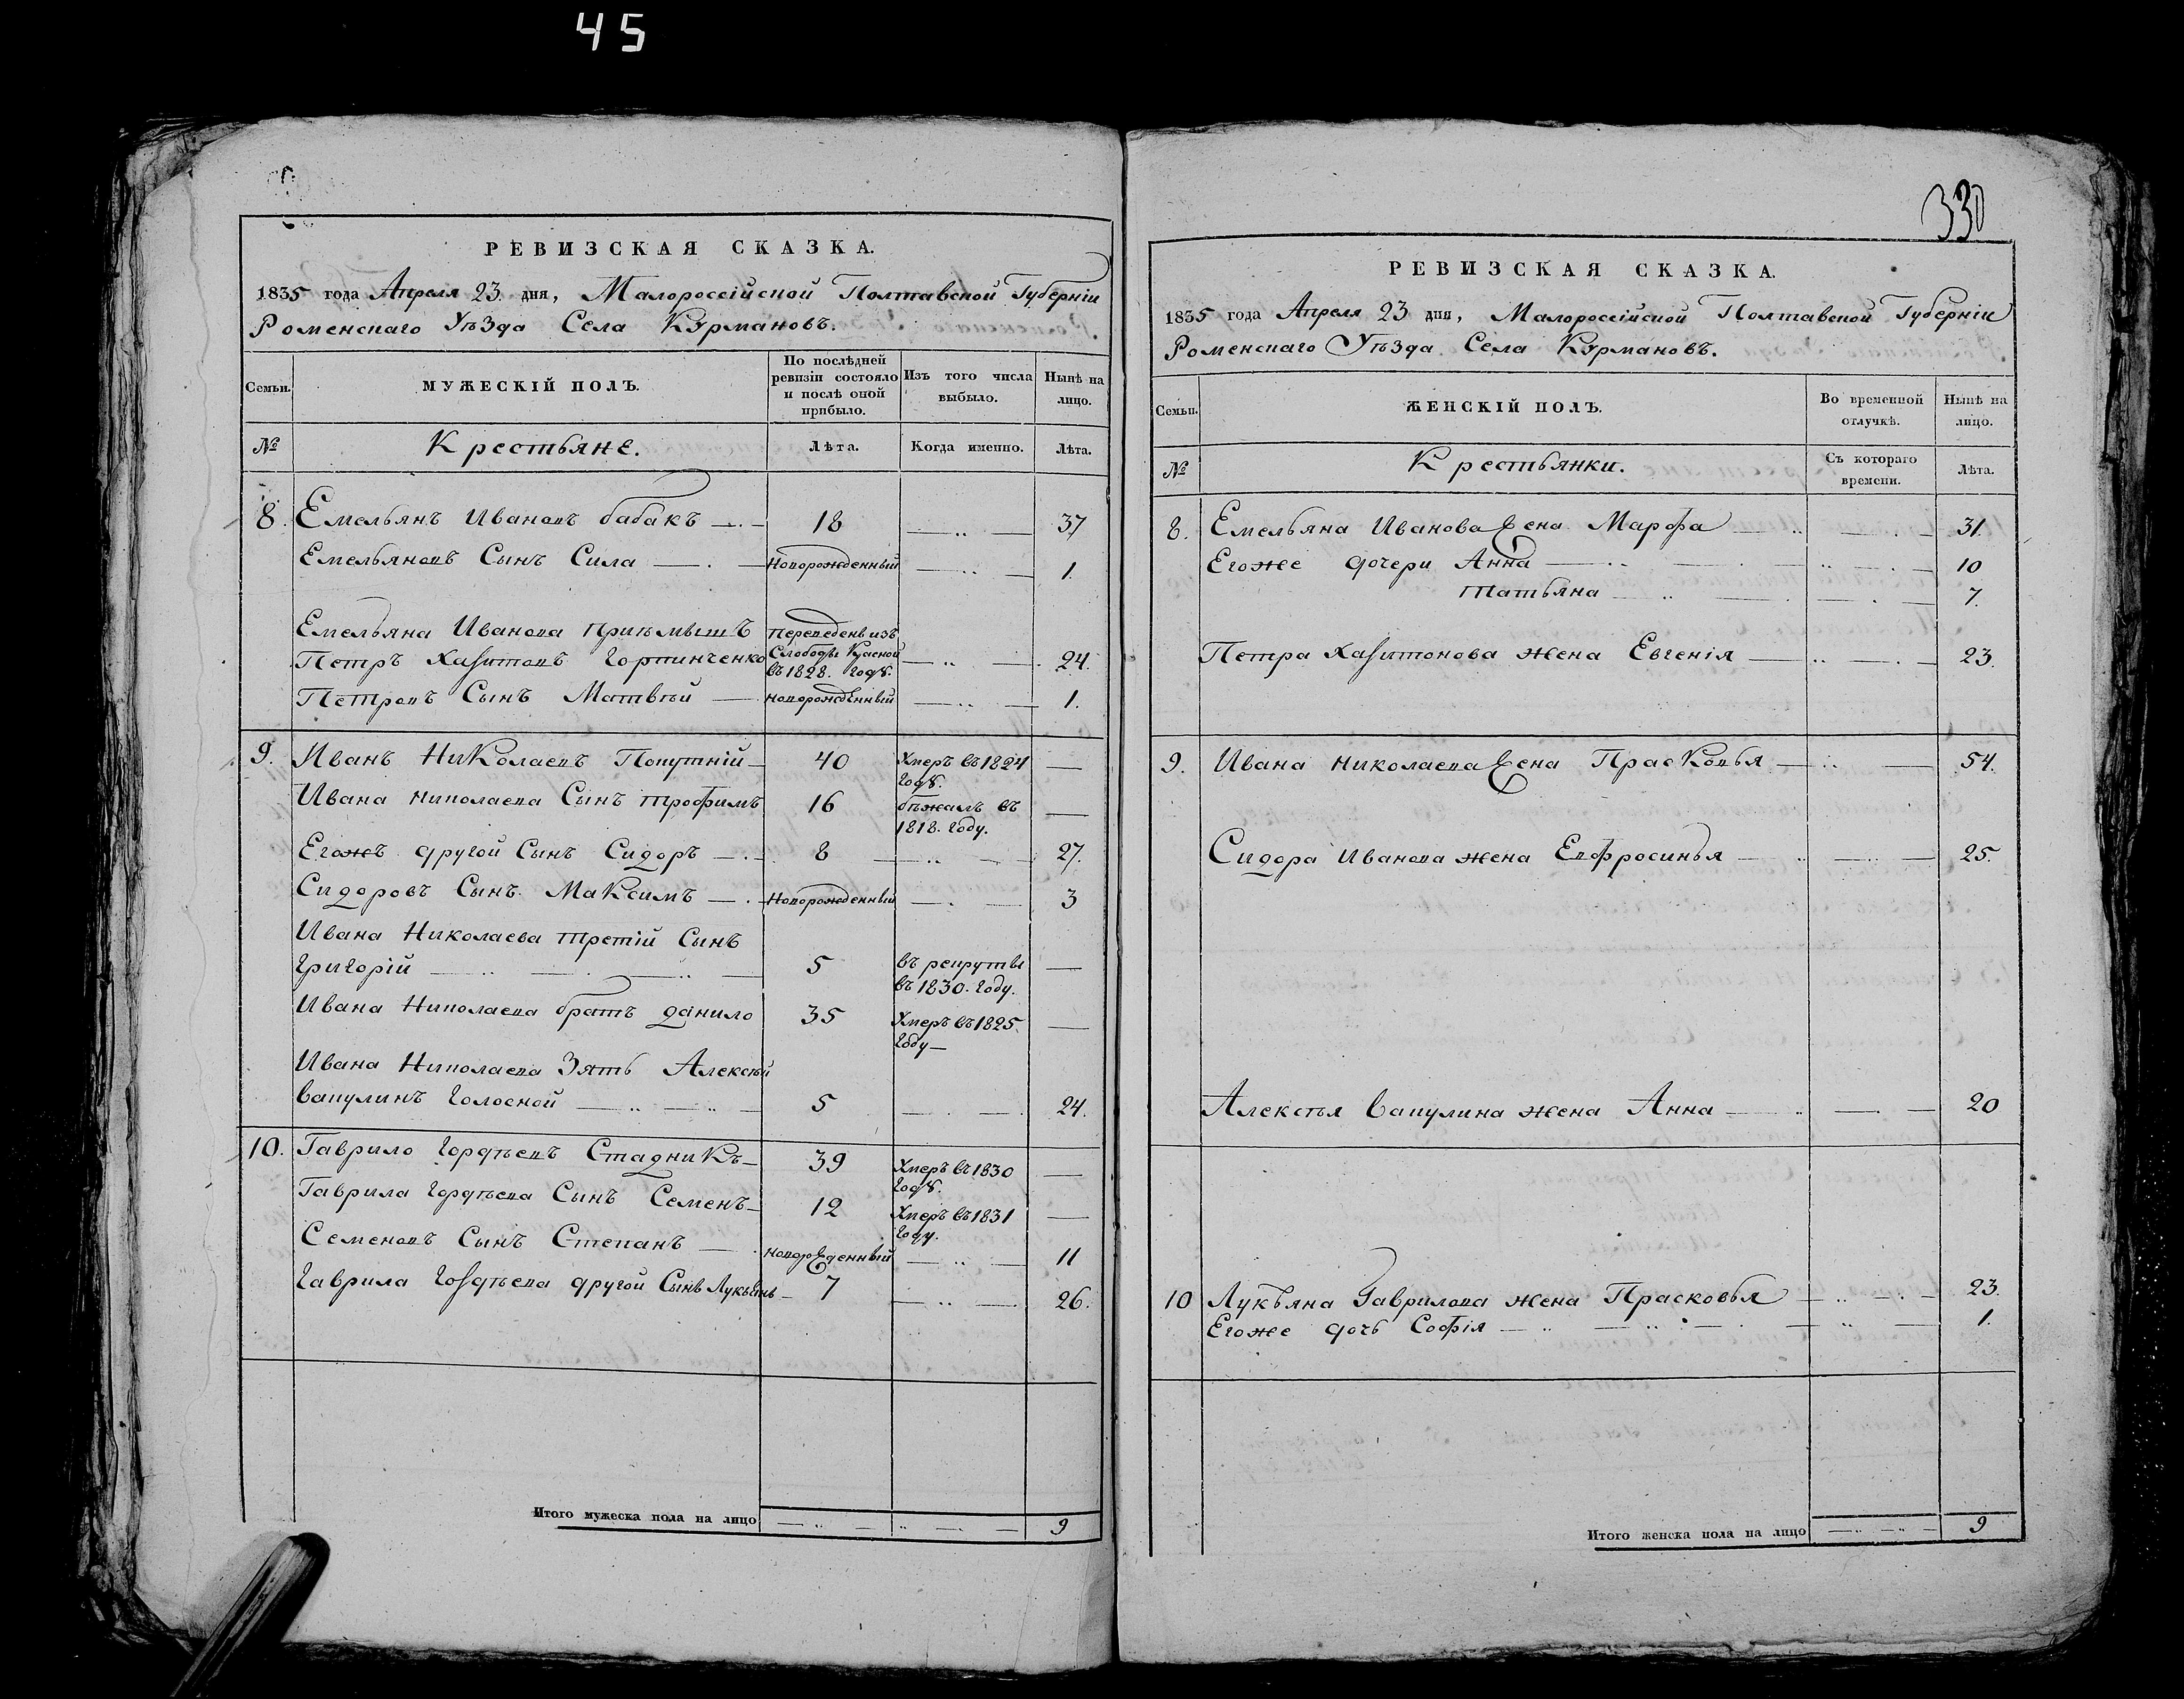 45
РЕВИЗСКАЯ СКАЗКА.
1835 года Апреля 23. дня, Малороссійской Полтавской Губерніи
Роменскаго Уѣзда Села Курмановъ.
Семьи.
МУЖЕСКІЙ ПОЛЪ.
По послѣдней ревизіи состояло и послѣ оной прибыло.
Изъ того числа выбыло.
Нынѣ на лицо.
№
Крестьяне.
Лѣта.
Когда именно.
Лѣта.
8. Емельянъ Ивановъ бабакъ 18 37
Емельяновъ Сынъ Сила новорожденный 1.
Емельяна Иванова приѣмышъ переведенъ изъ
Петръ Харитоновъ Горпинченко Слободы Красной 24.
въ 1828. году.
Петровъ Сынъ Матвѣй новорожденный 1.
9. Иванъ Николаевъ Попутній 40 Умеръ въ 1824
году.
Ивана Николаева Сынъ трофимъ 16 бѣжалъ въ
1818. году.
Егожъ другой Сынъ Сидоръ 8 27.
Сидоровъ Сынъ Максимъ новорожденный 3
Ивана Николаева третій Сынъ
григорій 5 въ рекруты
въ 1830. году.
Ивана Николаева братъ данило 35 Умеръ въ 1825.
году
Ивана Николаева Зять Алексѣй
вакулинъ голосной 5 24.
10. Гаврило гордѣевъ Стадникъ 39 Умеръ въ 1830
году.
Гаврила гордѣева Сынъ Семенъ 12 Умеръ въ 1831
году.
Семеновъ Сынъ Степанъ новорожденный 11
гаврила гордѣева другой Сынъ Лукьянъ 7 26.
Итого мужеска пола на лицо 9
330
РЕВИЗСКАЯ СКАЗКА.
1835 года Апреля 23 дня, Малороссійской Полтавской Губерніи
Роменскаго Уѣзда Села Курмановъ.
Семьи.
ЖЕНСКІЙ ПОЛЪ.
Во временной отлучкѣ.
Нынѣ на лицо.
№
Крестьянки.
Съ котораго времени.
Лѣта.
8. Емельяна Иванова жена Марфа 31.
Егоже дочери Анна 10
татьяна 7.
Петра Харитонова жена Евгенія 23.
9. Ивана николаева жена Прасковья 54.
Сидора иванова жена Евфросинья 25.
Алексѣя вакулина жена Анна 20
10 Лукьяна Гаврилова жена Прасковья 23.
Егоже дочь Софія 1.
Итого женска пола на лицо 9